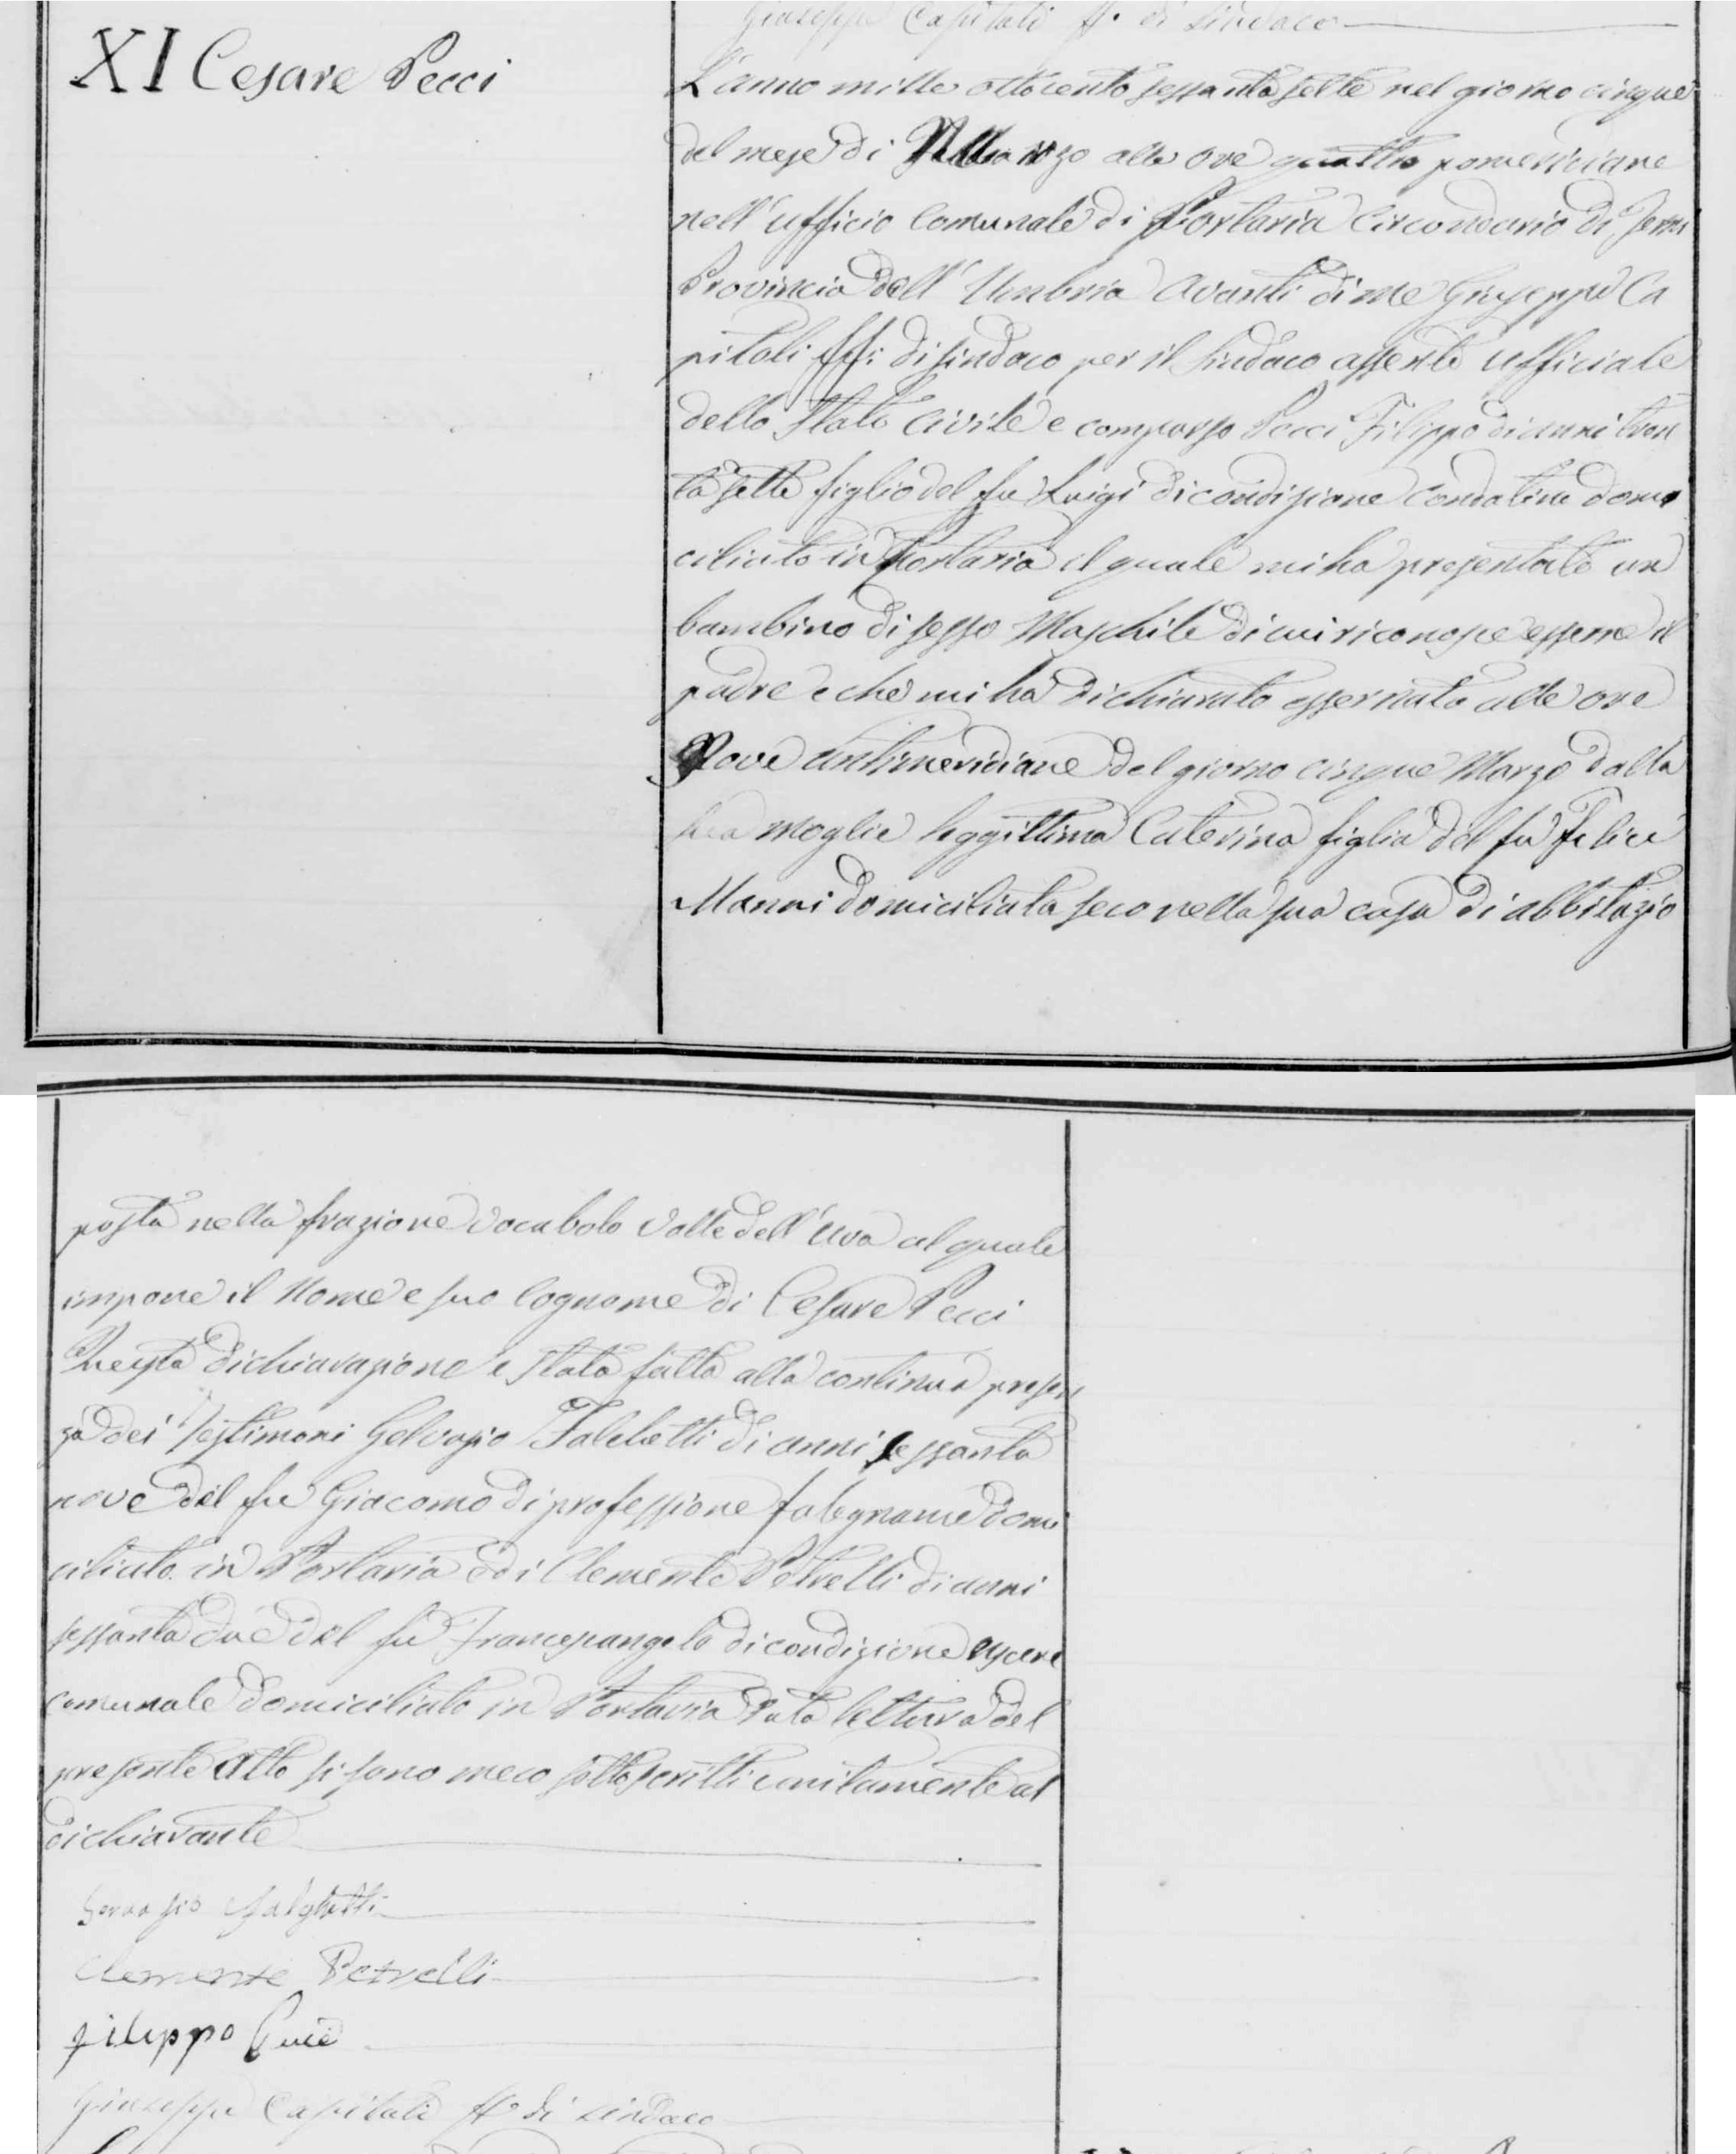 Giuseppe Capitali ff. di Sindaco
XI Cesare Pecci
L'anno mille ottocento sessanta sette nel giorno cinque
del mese di Marzo alle ore quattro pomeridiane
nell'ufficio Comunale di Portaria Circondario di Terni
Provincia dell'Umbria Avanti di me Giuseppe Ca
pitali ff: di sindaco per il Sindaco assente ufficiale
dello Stato Civile e comparso Pecci Filippo di anni tren
ta sette figlio del fu Luigi di condizione Contadino domi
ciliato in Portaria il quale mi ha presentato un
bambino di sesso Maschile di cui riconosce esserne il
padre e che mi ha dichiarato esser nato alle ore
Nove antimeridiane del giorno cinque Marzo dalla
sua moglie leggittima Caterina figlia del fu Felice
Manni domiciliata seco nella sua casa di abbitazio
posta nella frazione vocabolo Valle dell'Uva al quale
impone il Nome e suo Cognome di Cesare Pecci
Questa dichiarazione e stata fatta alla continua presen
za dei Testimoni Gelvasio Falchetti di anni sessanta
nove del fu Giacomo di professione falegname domi
ciliato in Portaria e di Clemente Petrelli di anni
sessanta due del fu Francescangelo di condizione uscere
comunale domiciliato in Portaria Data lettura del
presente atto si sono meco sottoscritti unitamente al
dichiarante
Gervasio Falghetti
Clemente Petrelli
filippo
Giuseppe Capitali ff. di Sindaco